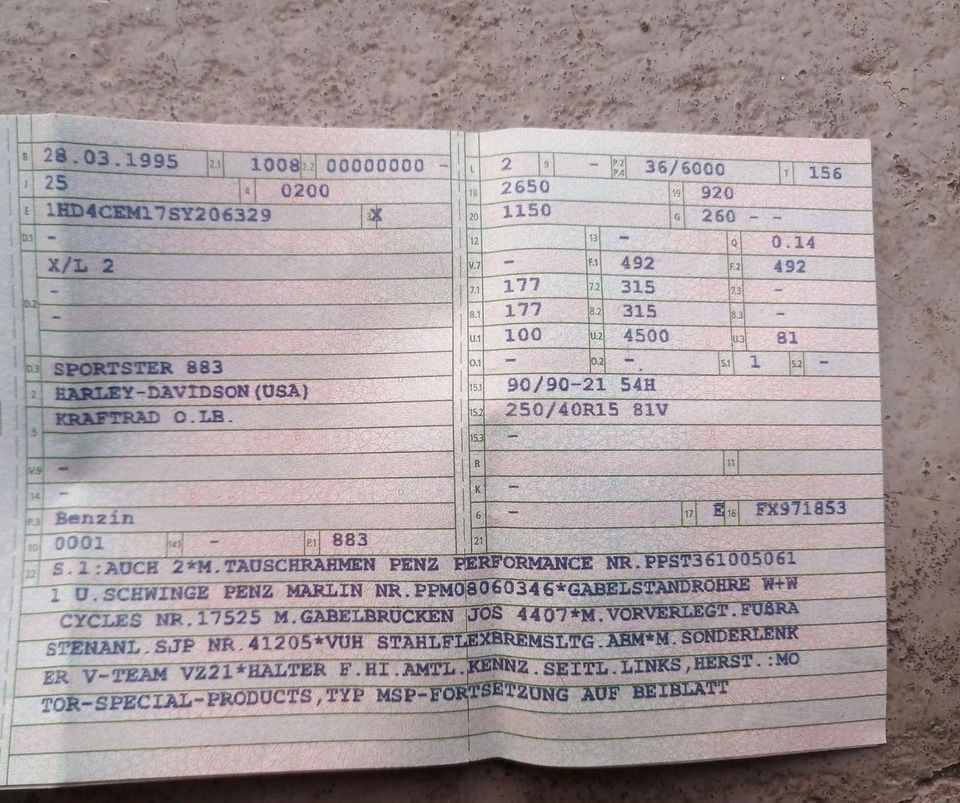 B 28.03.1995 2.1 1008 2.2 00000000 -
J 25 4 0200
E 1HD4CEM17SY206329 3 X
D.1 -
X/L 2
D.2 -
-
D.3 SPORTSTER 883
2 HARLEY-DAVIDSON(USA)
KRAFTRAD O.LB.
5
V.9 -
14 -
P.3 Benzin
10 0001 14.1 - P.1 883
L 2 9 - P.2 P.4 36/6000 T 156
18 2650 19 920
20 1150 G 260 - -
12 13 - Q 0.14
V.7 - F.1 492 F.2 492
7.1 177 7.2 315 7.3 -
8.1 177 8.2 315 8.3 -
U.1 100 U.2 4500 U.3 81
O.1 - O.2 - S.1 1 S.2 -
15.1 90/90-21 54H
15.2 250/40R15 81V
15.3 -
R 11
K -
6 - 17 E 16 FX971853
21
22 S.1:AUCH 2*M.TAUSCHRAHMEN PENZ PERFORMANCE NR.PPST361005061
1 U.SCHWINGE PENZ MARLIN NR.PPM08060346*GABELSTANDROHRE W+W
CYCLES NR.17525 M.GABELBRÜCKEN JOS 4407*M.VORVERLEGT.FUßRA
STENANL.SJP NR.41205*VUH STAHLFLEXBREMSLTG.ABM*M.SONDERLENK
ER V-TEAM VZ21*HALTER F.HI.AMTL.KENNZ.SEITL.LINKS,HERST.:MO
TOR-SPECIAL-PRODUCTS,TYP MSP-FORTSETZUNG AUF BEIBLATT